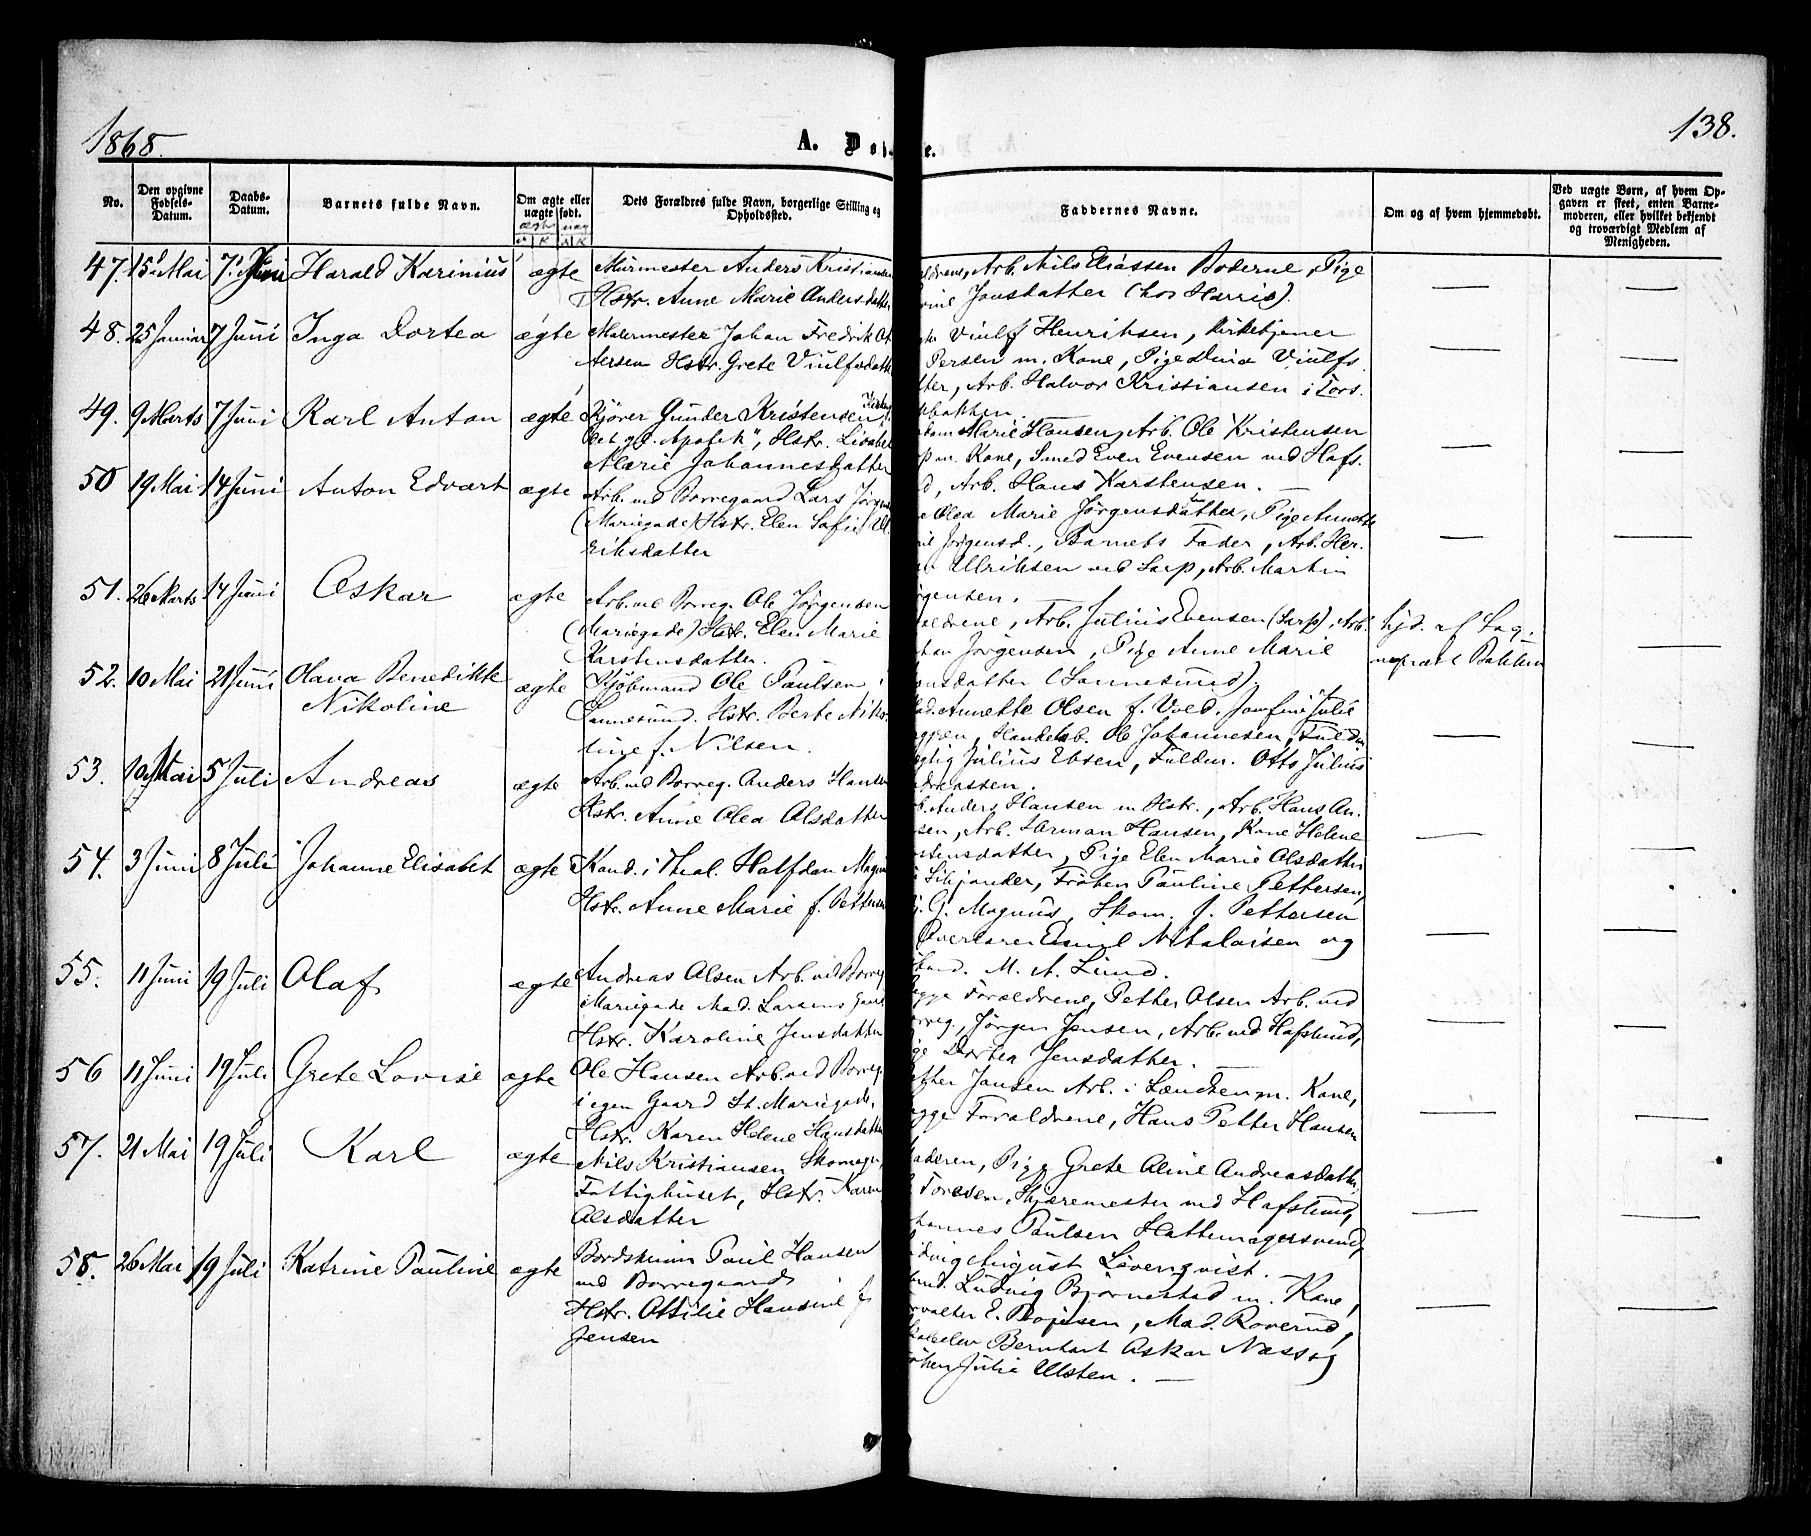 1868.
138.
A. Døbte.
No.
Den opgivne Fødsels-Datum.
Daabs-Datum.
Barnets fulde Navn.
Om ægte eller uægte født.
Dets Forældres fulde Navn, borgerlige Stilling og Opholdssted.
Faddernes Navne.
Om og af hvem hjemmedøbt.
Ved uægte Børn, af hvem Opgaven er skeet, enten Barnemoderen, eller hvilket bekjendt og troværdigt Medlem af Menigheden.
47. 15 Mai 7 Juni Harald Karinius ægte Murmester Anders Kristiansen
Hstr. Anne Marie Andersdatter
Arb. Nils Eliassen Boderne, Pige
Jonsdatter (hos Harris).
48. 25 Januar 7 Juni Inga Dortea ægte Malermester Johan Fredrik
Hstr. Grete Viulfsdatter
Viulf Henriksen, Kirketjener
Persen m. Kone, Pige Viulfs
Arb. Halvor Kristiansen i Tors
bakken.
49. 9 Marts 7 Juni Karl Anton ægte Kjører Gunder Kristensen
det gl. Apotek", Hstr. Lisabet
Marie Johannesdatter
Marie Hansen, Arb. Ole Kristensen
m. Kone, Smed Even Evensen ved Hafs
Arb. Hans Karstensen.
50 19 Mai 14 Juni Anton Edvart ægte Arb. ved Borregaard Lars
(Mariegade) Hstr. Elen Sofie
riksdatter
Olea Marie Jørgensdatter, Pige Annette
Jørgensd., Barnets Fader, Arb. Her
Ulriksen ved Sarp, Arb. Martin
rgensen.
51. 26 Marts 14 Juni Oskar ægte Arb. ved Borreg. Ole Jørgensen
(Mariegade) Hstr. Elen Marie
Karstensdatter.
Arb. Julius Evensen (Sarp), Arb.
Jørgensen, Pige Anne Marie
datter (Sannesund).
hjd. af Sog-
nepræst Bakken
52. 10 Mai 21 Juni Olava Benedikte
Nikoline ægte Kjøbmand Ole Paulsen i
Sannesund. Hstr. Berte Niko
line f. Nilsen.
Annette Olsen f. Voed, Julie
Handelsb. Ole Johannesen,
Julius Ebsen, Fuldm. Otto Julius
53. 10 Mai 5 Juli Andreas ægte Arb. ved Borreg. Anders Hansen
Hstr. Anne Olea Olsdatter
Anders Hansen m Hstr., Arb. Hans An
sen, Arb. Herman Hansen, Kone Helene
stensdatter, Pige Elen Marie Olsdatter
54. 3 Juni 8 Juli Johanne Elisabet ægte Kand. i Theol. Halfdan Magnus
Hstr. Anne Marie f. Pettersen
Frøken Pauline Pettersen,
G. Magnus, Skom. J. Pettersen
Emil Nikolaisen og
M. A. Lund.
55. 11 Juni 19 Juli Olaf ægte Andreas Olsen Arb. ved Borreg
Mariegade Mad. Larsens
Hstr. Karoline Jensdatter
Begge Forældrene, Petter Olsen Arb. ved
Borreg., Jørgen Jensen, Arb. ved Hafslund,
Dortea Jensdatter.
56 11 Juni 19 Juli Grete Lovise ægte Ole Hansen Arb. ved Borreg.
i egen Gaard St. Mariegade,
Hstr. Karen Helene Hansdatter
Petter Jansen Arb. i m. Kone,
Begge Forældrene, Hans Petter Hansen
57. 21 Mai 19 Juli Karl ægte Nils Kristiansen Skomager,
Fattighuset, Hstr. Karen
Olsdatter
Faderen, Pige Grete Aline Andreasdatter,
Toresen, Skjæremester ved Hafslund,
Johannes Paulsen Hattemagersvend,
August Løvenqvist.
58. 26 Mai 19 Juli Katrine Pauline ægte Paul Hansen
ved Borregaard
Hstr. Ottilie Hansine f.
Jensen
Ludvig Bjørnestad m. Kone,
valter E. Bojesen, Mad. Roverud,
Bernhart Oskar Næss og
Julie Ulsten.